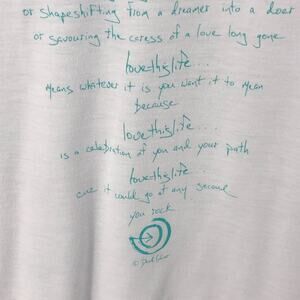 or shapeshifting from a dreamer into a doer
or savouring the caress of a love long gone
lovethislife...
means whatever it is you want it to mean
because
lovethislife...
is a celebration of you and your path
lovethislife...
cuz it would go at any second
you rock
©